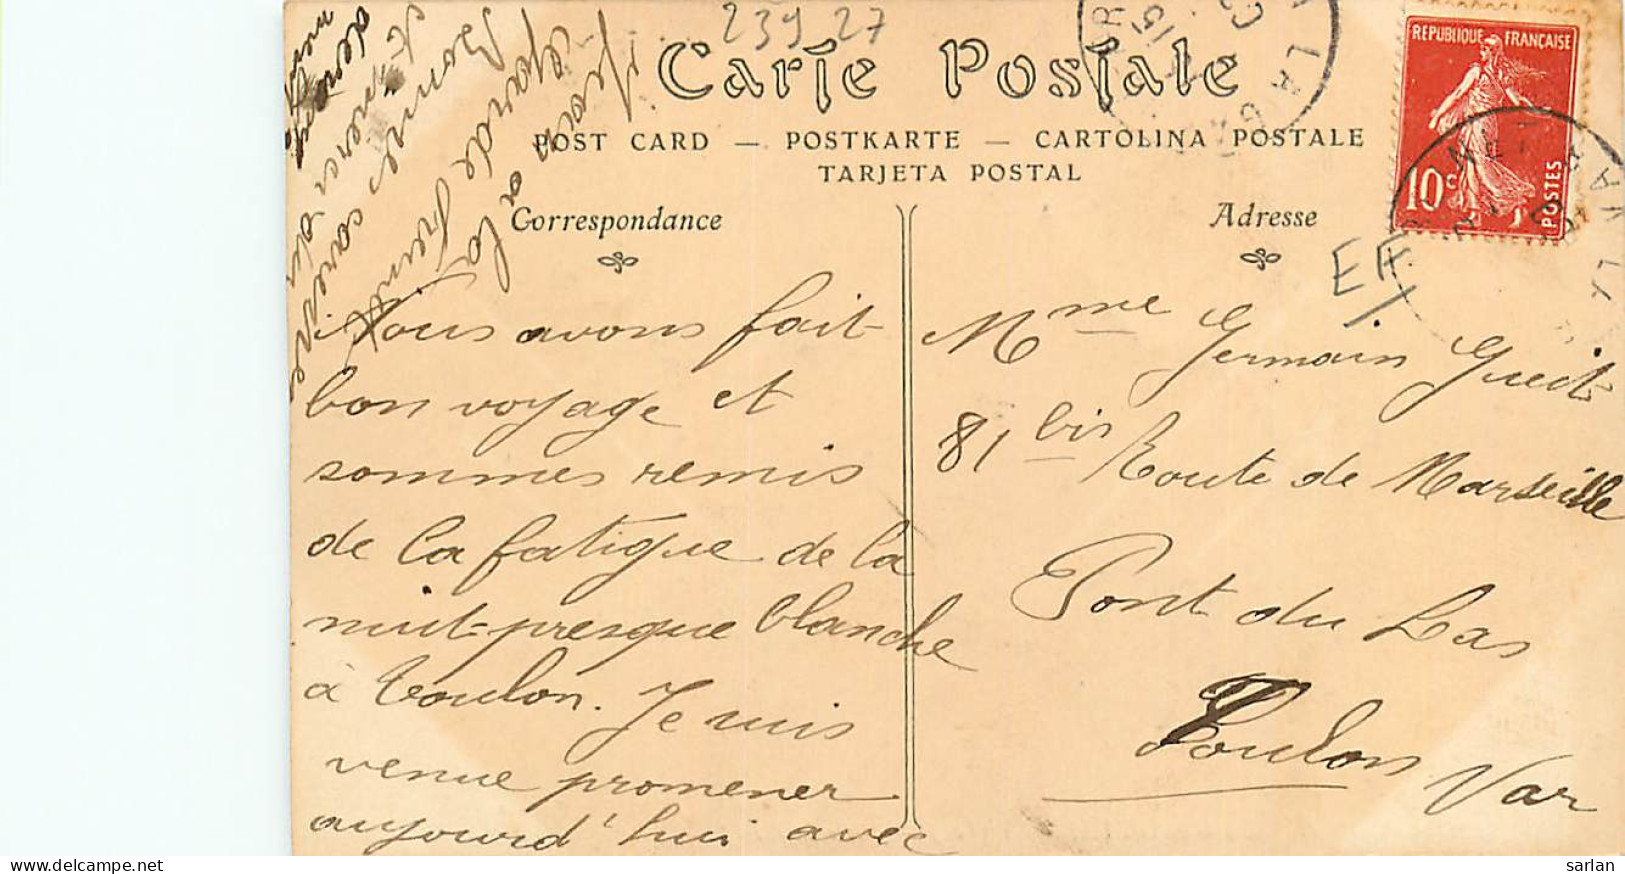 239 27
Carte Postale
POST CARD — POSTKARTE — CARTOLINA POSTALE
TARJETA POSTAL
REPUBLIQUE FRANÇAISE
10c
POSTES
Correspondance
Nous avons fait
bon voyage et
sommes remis
de la fatigue de la
nuit presque blanche
à Toulon. Je suis
venue promener
aujourd'hui avec
Jean à la
Bonne caresse
et merci du
Adresse
Mme Germain Gueit
81 bis Route de Marseille
Pont du Las
Toulon Var
sarlan